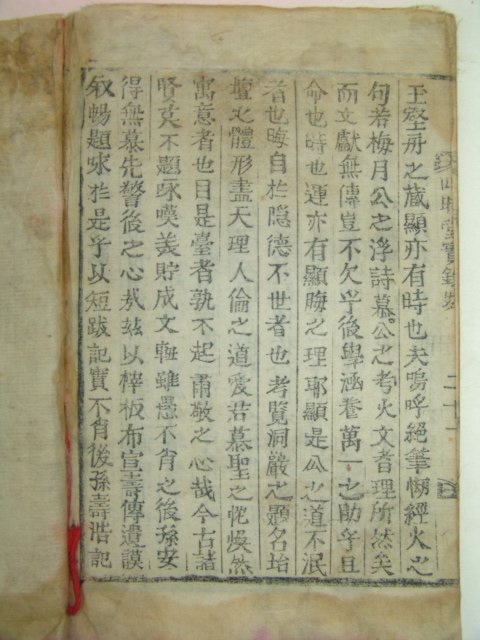 王壑舟之蔵顯亦有時也夫嗚呼絕筆慟經火之
句若梅月公之浮詩慕公之考火文者理所然矣
而文獻無傳豈不欠乎後學涵卷萬一之助乎且
命也時也運亦有顯晦之理耶顯是公之道不泯
者也晦自於隠德不世者也考覧洞嚴之題名培
壇之體形盡天理人倫之道爰若慕聖之地煥然
寓意者也目是臺者孰不起肅敬之心哉今古諸
賢莫不題咏嘆美貯成文軸雖愚不肖之後孫安
得無慕先警後之心哉玆以梓板布宣壽傳遺謨
叙暢題咏於是乎以短跋記實不肖後孫壽浩記
堂實
二十一